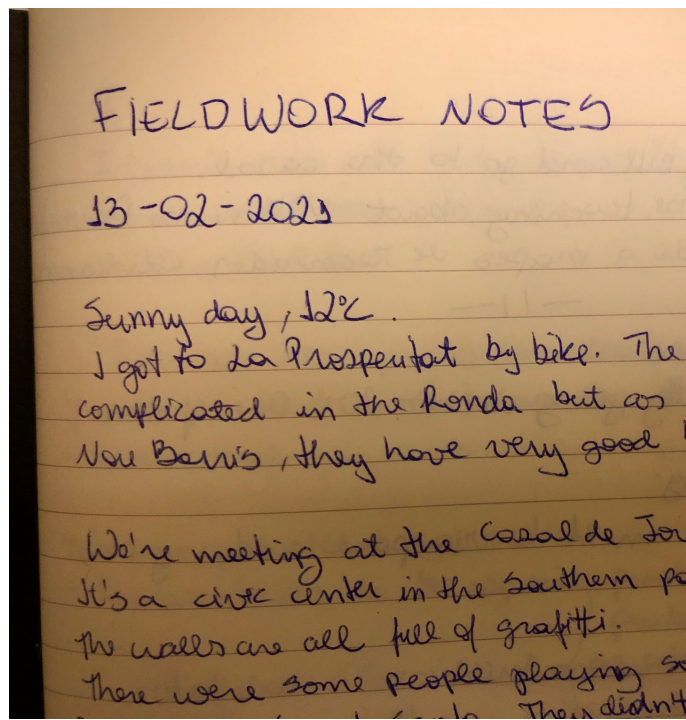 FIELDWORK NOTES
13-02-2021
Sunny day, 12°C.
I got to La Prosperitat by bike. The
complicated in the Ronda but as
Nou Barris, they have very good
We're meeting at the Casal de Jo
It's a civic center in the southern pa
The walls are all full of grafitti.
There were some people playing so
They didn't